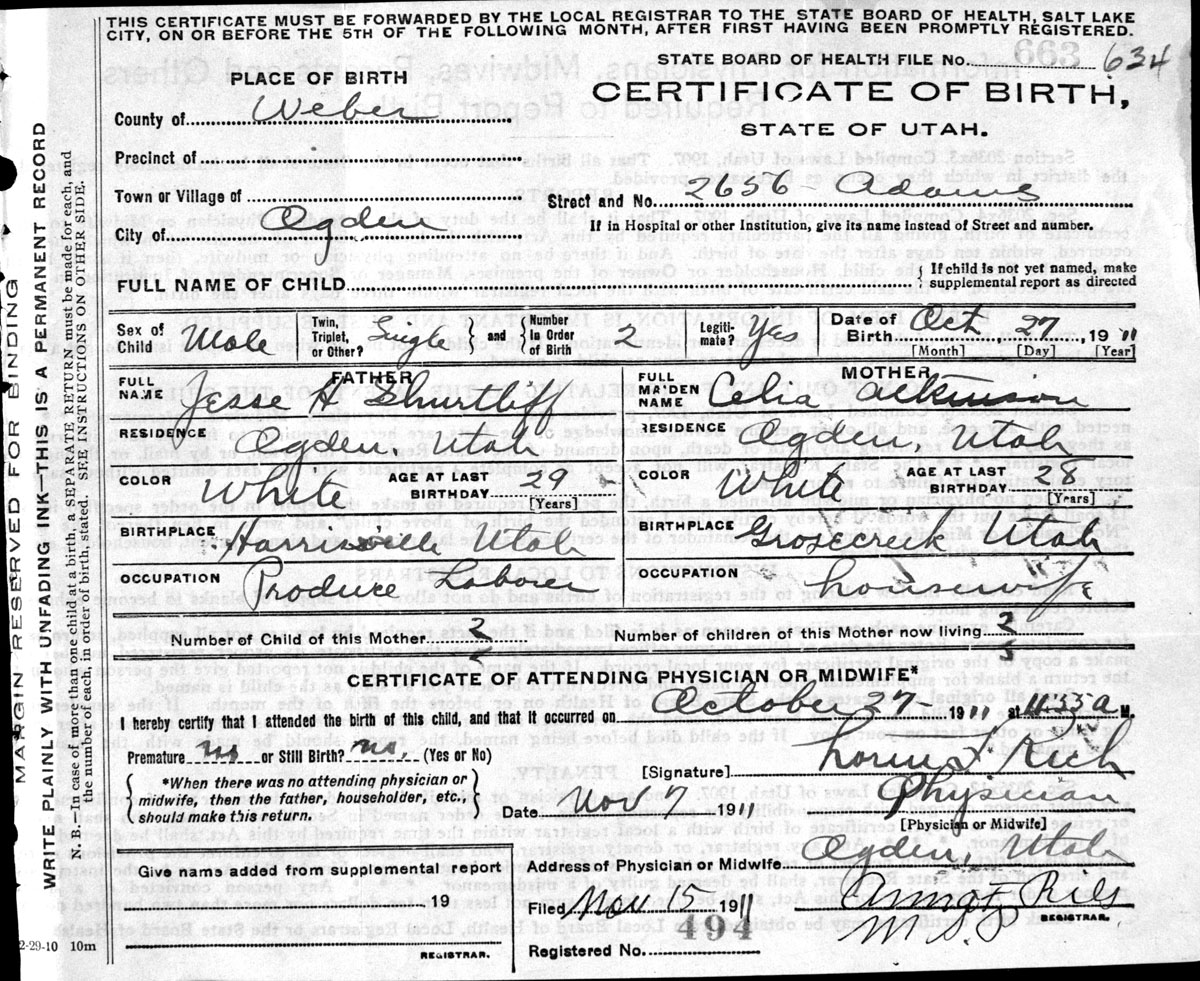 THIS CERTIFICATE MUST BE FORWARDED BY THE LOCAL REGISTRAR TO THE STATE BOARD OF HEALTH, SALT LAKE
CITY, ON OR BEFORE THE 5TH OF THE FOLLOWING MONTH, AFTER FIRST HAVING BEEN PROMPTLY REGISTERED.
STATE BOARD OF HEALTH FILE No. 634
663
PLACE OF BIRTH
CERTIFICATE OF BIRTH,
STATE OF UTAH.
County of Weber
Precinct of
Town or Village of
Street and No. 2656 - Adams
City of Ogden
If in Hospital or other Institution, give its name instead of Street and number.
FULL NAME OF CHILD
{ If child is not yet named, make
supplemental report as directed
Sex of Child Male
Twin, Triplet, or Other? Sigle } and { Number in Order of Birth 2
Legiti-mate? Yes
Date of Birth Oct 27, 1911
[Month] [Day] [Year]
FATHER
FULL NAME Jesse H Shurtliff
MOTHER
FULL MAIDEN NAME Celia Atkinson
RESIDENCE Ogden Utah
RESIDENCE Ogden, Utah
COLOR White AGE AT LAST BIRTHDAY 29 [Years]
COLOR White AGE AT LAST BIRTHDAY 28 [Years]
BIRTHPLACE Harrisville Utah
BIRTHPLACE Grosecreek Utah
OCCUPATION Produce Labore
OCCUPATION housewife
Number of Child of this Mother 2
Number of children of this Mother now living 2
CERTIFICATE OF ATTENDING PHYSICIAN OR MIDWIFE*
I hereby certify that I attended the birth of this child, and that it occurred on October 27 - 1911 at 11.33 a M.
Premature no or Still Birth? no, (Yes or No)
{ *When there was no attending physician or
midwife, then the father, householder, etc.,
should make this return. }
[Signature] Rich
Date Nov 7 1911 Physician
[Physician or Midwife]
Address of Physician or Midwife Ogden, Utah
Give name added from supplemental report
19
REGISTRAR.
Filed Nov 15 1911
REGISTRAR.
Registered No. 494
2-29-10 10m
MARGIN RESERVED FOR BINDING
WRITE PLAINLY WITH UNFADING INK—THIS IS A PERMANENT RECORD
N. B.—In case of more than one child at a birth, a SEPARATE RETURN must be made for each, and
the number of each, in order of birth, stated. SEE INSTRUCTIONS ON OTHER SIDE.